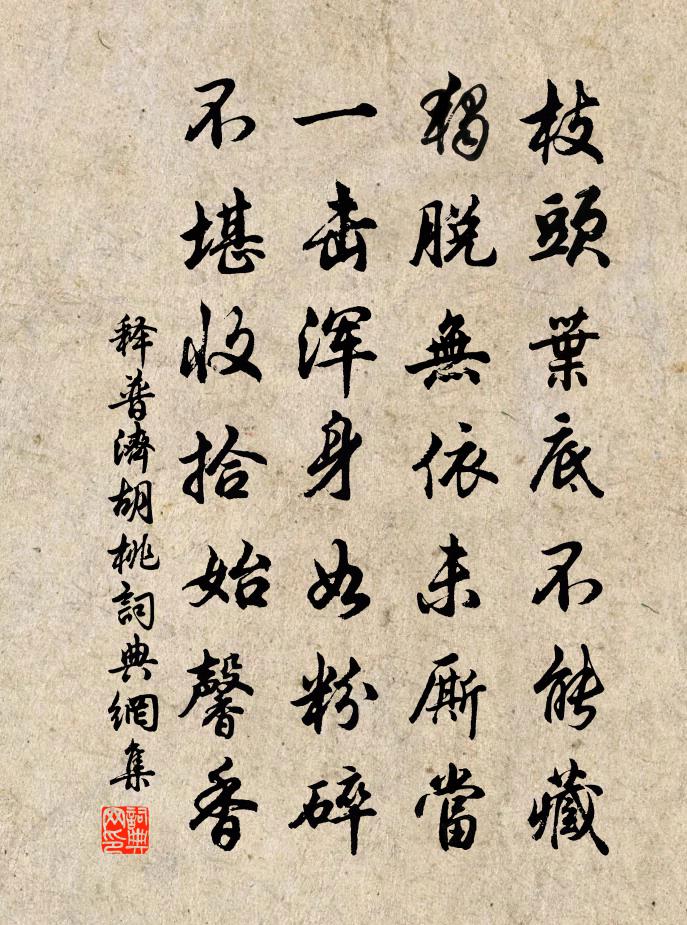 枝頭葉底不能藏
獨脫無依未廝當
一击渾身如粉碎
不堪收拾始馨香
释普濟胡桃詞典網集
詞典网印